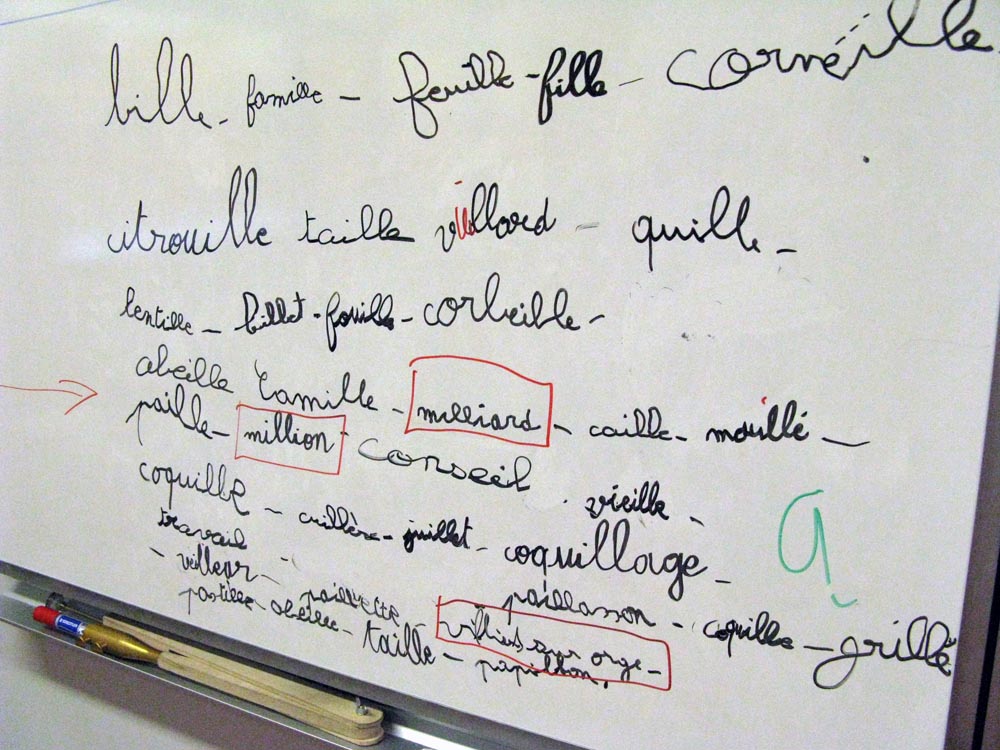 bille - famille - feuille - fille - corneille
citrouille taille vieillard - quille -
lentille - billet - fouille - corbeille -
abeille Camille - milliard - caille - mouillé -
paille - million - conseil . vieille -
coquille - cuillère - juillet - coquillage -
travail - paillasson - coquille - grillé
- veilleur - paillette villiers sur orge -
pastille - abeille - taille - papillon.
a